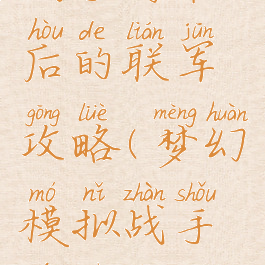 hòu de lián jūn
后的联军
gōng lüè mèng huàn
攻略(梦幻
mó nǐ zhàn shǒu
模拟战手